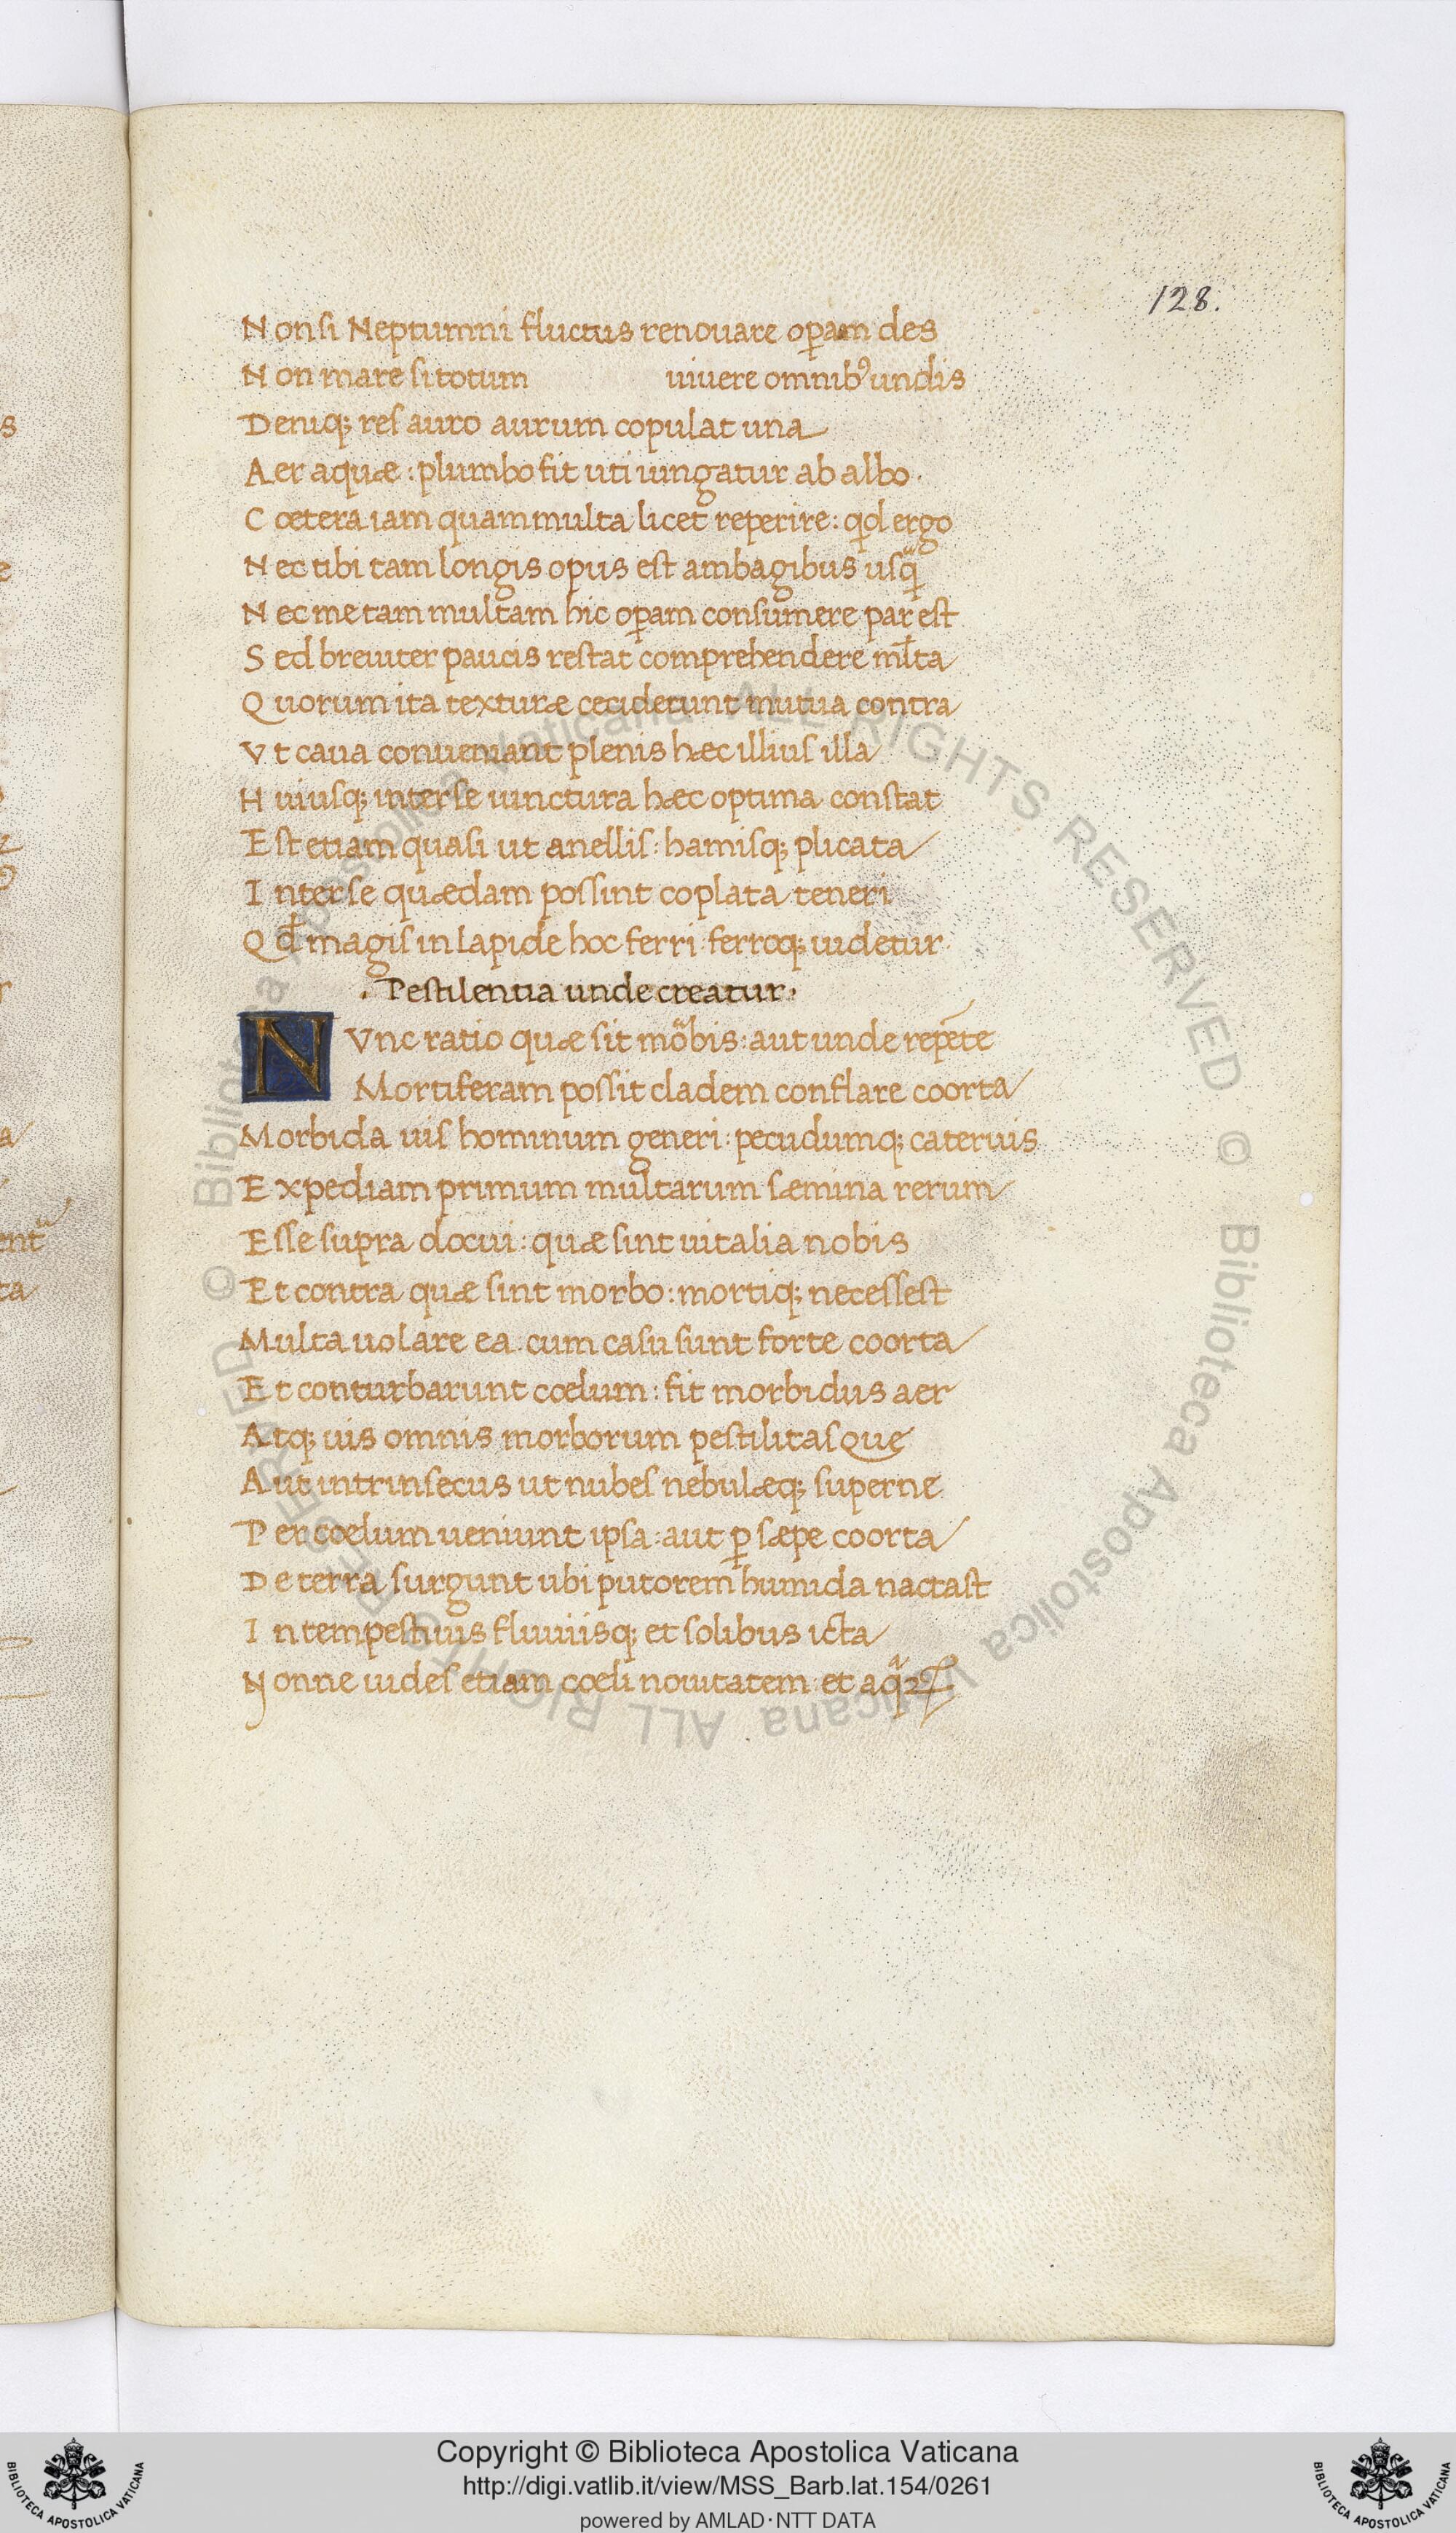 128.
Non si Neptumni fluctus renouare oꝑam des
Non mare si totum uiuere omnibꝰ undis
Deniqꝫ res auro aurum copulat una
Aer aquæ: plumbo fit uti iungatur ab albo.
Cœtera iam quam multa licet reperire: qͥd ergo
Nec tibi tam longis opus est ambagibus usqᷓ
Nec me tam multam hic oꝑam consumere par est
Sed breuiter paucis restat comprehendere ml̄ta
Quorum ita texturæ ceciderunt mutua contra
Vt caua conueniant plenis hæc illius illa
Huiusqꝫ inter se iunctura hæc optima constat
Est etiam quasi ut anellis: hamisqꝫ plicata
Inter se quædam possint coplata teneri
Qd̄ magis in lapide hoc ferri: ferroqꝫ uidetur
. Pestilentia unde creatur.
NVnc ratio quæ sit moᷓbis: aut unde repēte
Mortiferam possit cladem conflare coorta
Morbida uis hominum generi: pecudumqꝫ cateruis
Expediam primum multarum sæmina rerum
Esse supra docui: quæ sint uitalia nobis
Et contra quæ sint morbo: mortiqꝫ necessest
Multa uolare ea cum casu sunt forte coorta
Et conturbarunt cœlum: fit morbidus aer
Atqꝫ uis omnis morborum pestilitasQue
Aut intrinsecus ut nubes nebulæqꝫ superne
Per cœlum ueniunt ipsa: aut ꝑ sæpe coorta
De terra surgunt ubi putorem humida nactast
Intempestiuis fluuiisqꝫ et solibus icta
Nonne uides etiam cœli nouitatem: et aqᷓꝝ
Copyright © Biblioteca Apostolica Vaticana
http://digi.vatlib.it/view/MSS_Barb.lat.154/0261
powered by AMLAD·NTT DATA
BIBLIOTECA APOSTOLICA VATICANA
BIBLIOTECA APOSTOLICA VATICANA
© Biblioteca Apostolica Vaticana ALL RIGHTS RESERVED © Biblioteca Apostolica Vaticana ALL RIGHTS RESERVED